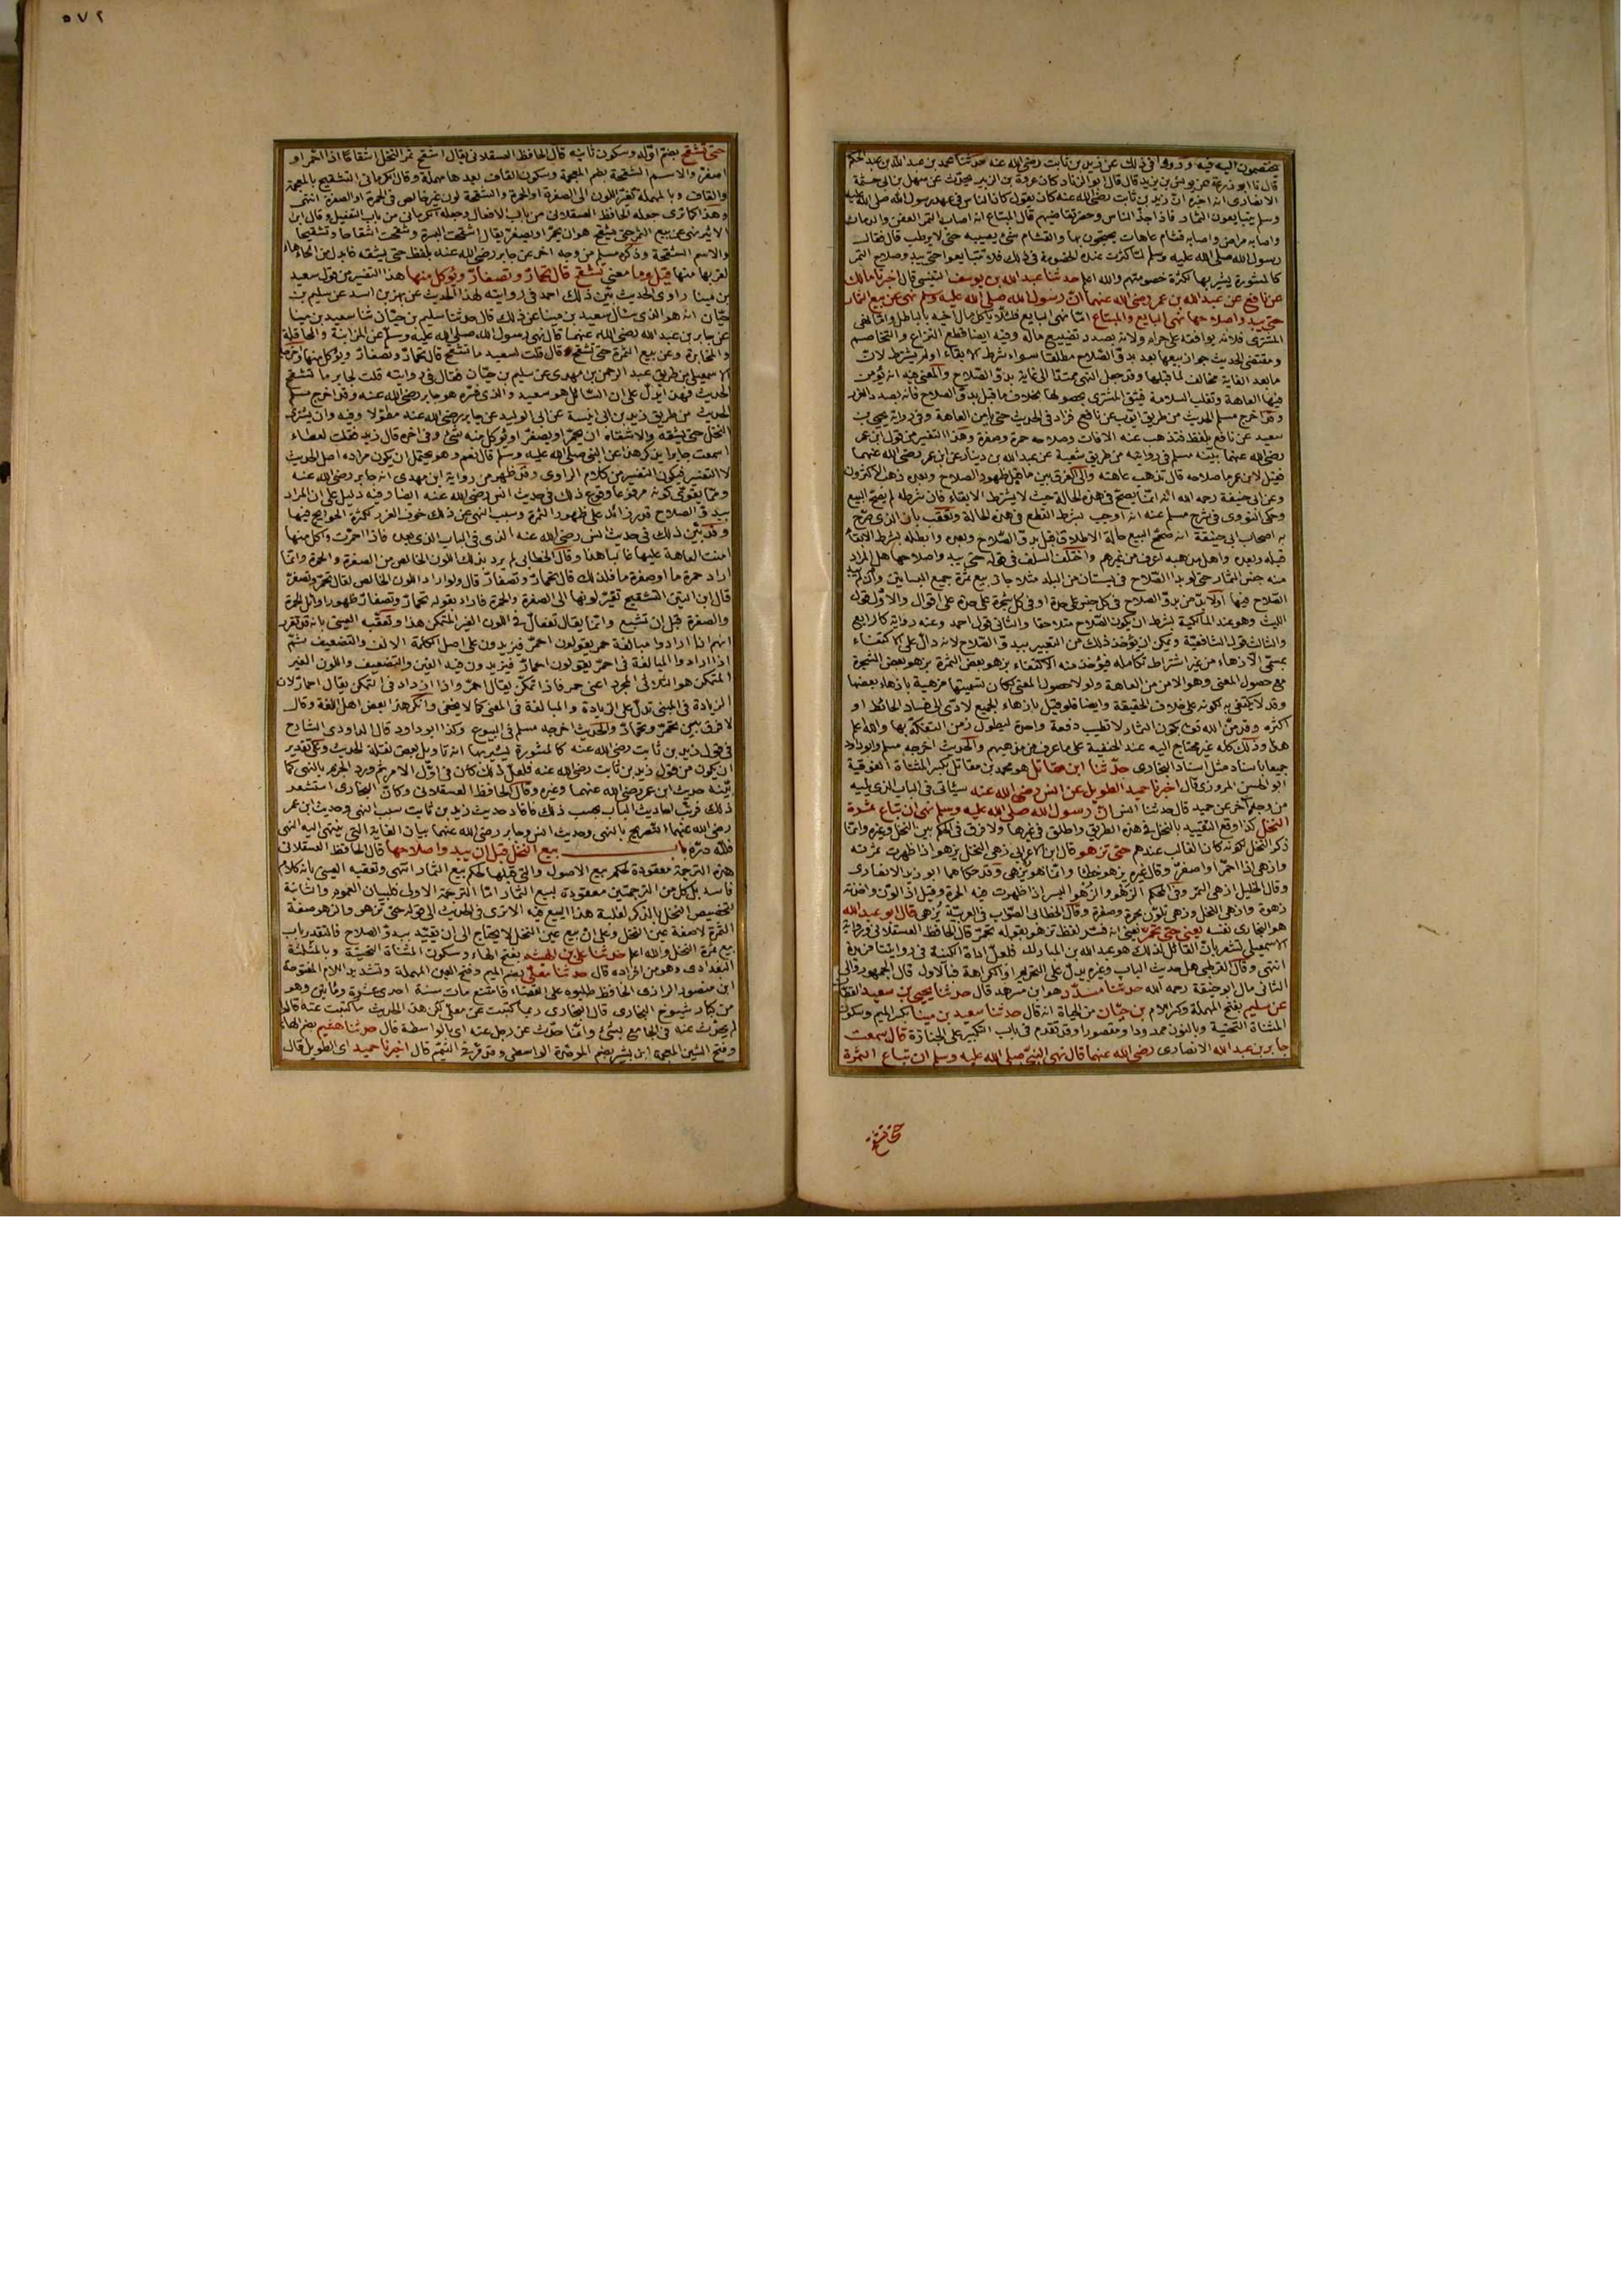 يختصمون اليه فيه وروى في ذلك عن زيد بن ثابت رضي الله عنه حدثنا محمد بن عبد الله بن عبد الحكم
الانصاري انه اخبره ان زيد بن ثابت رضي الله عنه كان يقول كان الناس في عهد رسول الله صلى الله عليه
وسلم يتبايعون الثمار فاذا جذّ الناس وحضر تقاضيهم قال المبتاع انه اصاب الثمر العفن والدمان
رسول الله صلى الله عليه وسلم لما كثرت عنده الخصومة في ذلك فلا تتبايعوا حتى يبدو صلاح الثمر
كالمشورة يشير بها لكثرة خصومتهم والله اعلم حدثنا عبد الله بن يوسف التنيسي قال اخبرنا مالك
عن نافع عن عبد الله بن عمر رضي الله عنهما ان رسول الله صلى الله عليه وسلم نهى عن بيع الثمار
حتى يبدو صلاحها نهى البايع والمبتاع امّا نهي البايع فلئلا ياكل مال اخيه بالباطل وامّا نهي
المشتري فلانه يوافقه على حرام ولانه بصدد تضييع ماله وفيه ايضا قطع النزاع والتخاصم
ومقتضى الحديث جواز بيعها بعد بدوّ الصّلاح مطلقا سواء شرط الابقاء او لم يشرط لان
ما بعد الغاية مخالف لما قبلها وقد جعل النهي ممتدّا الى غاية بدوّ الصّلاح والمعنى فيه انه تؤمن
فيها العاهة وتغلب السلامة فيثق المشتري بحصولها بخلاف ما قبل بدوّ الصلاح فانه بصدد الغرر
وقد اخرج مسلم الحديث من طريق ايّوب عن نافع فزاد في الحديث حتى يأمن العاهة وفي رواية يحيى بن
سعيد عن نافع بلفظ وتذهب عنه الآفات وصلاحه حمرة وصفرة وهذا التفسير من قول ابن عمر
رضي الله عنهما بيّنه مسلم في روايته من طريق شعبة عن عبد الله بن دينار عن ابن عمر رضي الله عنهما
فقيل لابن عمر ما صلاحه قال تذهب عاهته والى الفرق بين ما قبل ظهور الصلاح وبعده ذهب الاكثرون
وعن ابي حنيفة رحمه الله انه انما يصح في هذه الحالة حيث لا يشترط الابقاء فان شرطه لم يصحّ البيع
وحكى النووي في شرح مسلم عنه انه اوجب شرط القطع في هذه الحالة وتعقب بان الذي صرّح
به اصحاب ابي حنيفة انه صحّح البيع حالة الاطلاق قبل بدوّ الصّلاح وبعده وابطله بشرط الابقاء
قبله وبعده واهل مذهبه اعرف من غيرهم واختلف السلف في قوله حتى يبدو صلاحها هل المراد
منه جنس الثمار حتى لو بدا الصّلاح في بستان من البلد مثلا جاز بيع ثمرة جميع البساتين وان لم يبد
الصّلاح فيها اولا بدّ من بدوّ الصلاح في كل جنس على حدة او في كل شجرة على حدة على اقوال والاوّل قول
الليث وهو عند المالكية بشرط ان يكون الصّلاح متلاحقا والثاني قول احمد وعنه رواية كالرابع
والثالث قول الشافعية ويمكن ان يؤخذ ذلك من التعبير ببدوّ الصّلاح لانه دالّ على الاكتفاء
بمسمّى الازهاء من غير اشتراط تكامله فيؤخذ منه الاكتفاء بزهو بعض الثمرة بزهو بعض الشجرة
مع حصول المعنى وهو الامن من العاهة ولولا حصول المعنى لكان تسميتها مزهية بازهاء بعضها
وقد لا يكتفى به لكونه على خلاف الحقيقة وايضا فلو قيل بازهاء الجميع لادّى الى فساد الحائط او
اكثره وقد منّ الله تعالى بكون الثمار لا تطيب دفعة واحدة ليطول زمن التفكه بها والله اعلم
هذا وذلك كله غير محتاج اليه عند الحنفية على ما عرف من مذهبهم والحديث اخرجه مسلم وابو داود
جميعا باسناد مثل اسناد البخاري حدّثنا ابن مقاتل هو محمد بن مقاتل بكسر المثناة الفوقية
ابو الحسن المروزي قال اخبرنا حميد الطويل عن انس رضي الله عنه سيأتي في الباب الذي يليه
من وجه آخر عن حميد قال حدثنا انس انّ رسول الله صلى الله عليه وسلم نهى ان تباع ثمرة
النخل كذا وقع التقييد بالنخل في هذه الطريق واطلق في غيرها ولا فرق في الحكم بين النخل وغيره وانّما
ذكر النخل لكونه كان الغالب عندهم حتى تزهو قال ابن الاعرابي زهى النخل يزهو اذا ظهرت ثمرته
وازهى اذا احمّر او اصفرّ وقال غيره يزهو خطأ وانما هو يزهي وقد حكاهما ابو زيد الانصاري
وقال الخليل ازهى الثمر وفي المحكم الزَهو والزُهو البسر اذا ظهرت فيه الحمرة وقيل اذا لوّن واحدته
زهوة وازهى النخل وزهى تلوّن بحمرة وصفرة وقال الخطابي الصّواب في العربيّة يُزهى قال ابو عبد الله
هو البخاري نفسه يعني حتى تحمرّ يعني انه فسّر لفظ تزهو بقوله تحمرّ قال الحافظ العسقلاني ورواية
الاسمعيلي تشعر بان القائل لذلك هو عبد الله بن المبارك فلعلّ اداة الكنية في روايتنا مزيدة
انتهى وقال القرطبي هل حديث الباب وغيره يدلّ على التحريم او الكراهة فبالاول قال الجمهور والى
الثاني مال ابو حنيفة رحمه الله حدثنا مسدّد هو ابن مسرهد قال حدثنا يحيى بن سعيد القطان
عن سليم بفتح المهملة وكسر اللام بن حيّان من الحياة انه قال حدثنا سعيد بن مينا بكسر الميم وسكون
المثناة التحتية وبالنون ممدودا ومقصورا وقد تقدم في باب التكبير على الجنازة قال سمعت
جابر بن عبد الله الانصاري رضي الله عنهما قال نهى النبيّ صلى الله عليه وسلم ان تباع الثمرة
حتى تشقح
٥٧٢
حتى تشقح بضم اوّله وسكون ثانيه قال الحافظ العسقلاني يقال اشقح ثمر النخل اشقاحا اذا احمّر او
اصفرّ والاسم الشقحة بضم المعجمة وسكون القاف بعدها مهملة وقال الكرماني التشقيح بالمعجمة
والقاف وبالمهملة تغيّر اللون الى الصفرة او الحمرة والشقحة لون غير خالص في الحمرة او الصفرة انتهى
وهذا كما ترى جعله الحافظ العسقلاني من باب الافعال وجعله الكرماني من باب التفعيل وقال ابن
الاثير نهى عن بيع الثمر حتى يشقح هو ان يحمّر او يصفرّ يقال اشقحت البسرة وشقحت اشقاحا وتشقيحا
والاسم الشقحة وذكره مسلم من وجه اخر عن جابر رضي الله عنه بلفظ حتى يشقه فابدل من الحاء هاء
لقربها منها قيل وما معنى تشقح قال تحمارّ وتصفارّ ويؤكل منها هذا التفسير من قول سعيد
بن مينا راوي الحديث بيّن ذلك احمد في روايته لهذا الحديث عن بهز بن اسد عن سليم بن
حيّان انه هو الذي سأل سعيد بن مينا عن ذلك قال حدثنا سليم بن حيّان ثنا سعيد بن مينا
عن جابر بن عبد الله رضي الله عنهما قال نهى رسول الله صلى الله عليه وسلم عن المزابنة والمحاقلة
والمخابرة وعن بيع الثمرة حتى تشقح قال قلت لسعيد ما تشقح قال تحمارّ وتصفارّ ويؤكل منها
الاسمعيلي من طريق عبد الرحمن بن مهدي عن سليم بن حيّان فقال في روايته قلت لجابر ما تشقح
الحديث فهذا يدلّ على ان السّائل هو سعيد والذي فسّره هو جابر رضي الله عنه وقد اخرج مسلم
الحديث من طريق زيد بن ابي انيسة عن ابي الوليد عن جابر رضي الله عنه مطوّلا وفيه وان يشتري
النخل حتى يشقه والاشقاه ان يحمّر او يصفرّ او يؤكل منه شيء وفي اخره قال زيد فقلت لعطاء
اسمعت جابرا يذكر هذا عن النبي صلى الله عليه وسلم قال نعم وهو يحتمل ان يكون مراده اصل الحديث
لا التفسير فيكون التفسير من كلام الراوي وقد ظهر من رواية ابن مهدي انه جابر رضي الله عنه
وممّا يقوّي كونه مرفوعا وقوع ذلك في حديث انس رضي الله عنه ايضا وفيه دليل على ان المراد
ببدوّ الصلاح قدر زائد على ظهور الثمرة وسبب النهي عن ذلك خوف الغرر لكثرة الجوايح فيها
وقد بيّن ذلك في حديث انس رضي الله عنه الذي في الباب الذي بعده فاذا احمرّت واكل منها
امنت العاهة عليها غالبا هذا وقال الخطابي لم يرد بذلك اللون الخالص من الصفرة والحمرة وانّما
اراد حمرة ما او صفرة ما فلذلك قال تحمارّ وتصفارّ قال ولو اراد اللون الخالص لقال تحمرّ وتصفرّ
قال ابن التين التشقيح تغيّر لونها الى الصفرة والحمرة فاراد بقوله تحمارّ وتصفارّ ظهور اوائل الحمرة
والصفرة قبل ان تشبع وانّما يقال تفعالّ في اللون الغير المتمكن هذا وتعقّبه العيني بانه قد تقرر
انهم اذا ارادوا مبالغة حمر يقولون احمرّ فيزيدون على اصل الكلمة الالف والتضعيف ثمّ
اذا ارادوا المبالغة في احمرّ يقولون احمارّ فيزيدون فيه الفين والتضعيف واللون الغير
المتمكن هو الثلاثي المجرد اعني حمر فاذا تمكّن يقال احمرّ واذا ازداد في التمكن يقال احمارّ لان
الزيادة في المبنى تدلّ على الزيادة والمبالغة في المعنى كما لا يخفى وانكر هذا بعض اهل اللغة وقال
لا فرق بين يحمرّ ويحمارّ والحديث اخرجه مسلم في البيوع وكذا ابو داود قال الداودي الشارح
في قول زيد بن ثابت رضي الله عنه كالمشورة يشير بها انه تأويل بعض نقلة الحديث وعلى تقدير
ان يكون من قول زيد بن ثابت رضي الله عنه فلعلّ ذلك كان في اوّل الامر ثم ورد الجزم بالنهي كما
بيّنه حديث ابن عمر رضي الله عنهما وغيره وقال الحافظ العسقلاني وكانّ البخاري استشعر
ذلك فرتّب احاديث الباب بحسب ذلك فافاد حديث زيد بن ثابت سبب النهي وحديث ابن عمر
رضي الله عنهما التّصريح بالنهي وحديث انس وجابر رضي الله عنهما بيان الغاية التي ينتهي اليه النهي
فللّه درّه باب بيع النخل قبل ان يبدو صلاحها قال الحافظ العسقلاني
هذه الترجمة معقودة لحكم بيع الاصول والتي قبلها لحكم بيع الثمار انتهى وتعقبه العيني بانه كلام
فاسد بل كل من الترجمتين معقودة لبيع الثمار امّا الترجمة الاولى فلبيان العموم والثانية
لتخصيص النخل بالذكر لغلبة هذا البيع فيه الا ترى في الحديث الى قوله حتى تزهو والزهو صفة
الثمرة لا صفة عين النخل وعلى انّ بيع عين النخل لا يحتاج الى ان يقيّد ببدوّ الصلاح فالتقدير باب
بيع ثمرة النخل والله اعلم حدثنا علي بن الهيثم بفتح الهاء وسكون المثناة التحتية وبالمثلثة
البغدادي وهو من افراده قال حدثنا معلّى بضم الميم وفتح العين المهملة وتشديد اللام المفتوحة
ابن منصور الرازي الحافظ طلبوه على القضاء فامتنع مات سنة احدى عشرة ومأتين وهو
من كبار شيوخ البخاري قال البخاري ربما كتبت عن معلّى لكن هذا الحديث ما كتبت عنه
لم يحدّث عنه في الجامع بشيء وانّما حدّث عن رجل عنه اي بالواسطة قال حدثنا هشيم بضم الهاء
وفتح الشين المعجمة ابن بشير بضم الموحّدة الواسطي وقد مرّ في التيمّم قال اخبرنا حميد اي الطويل قال